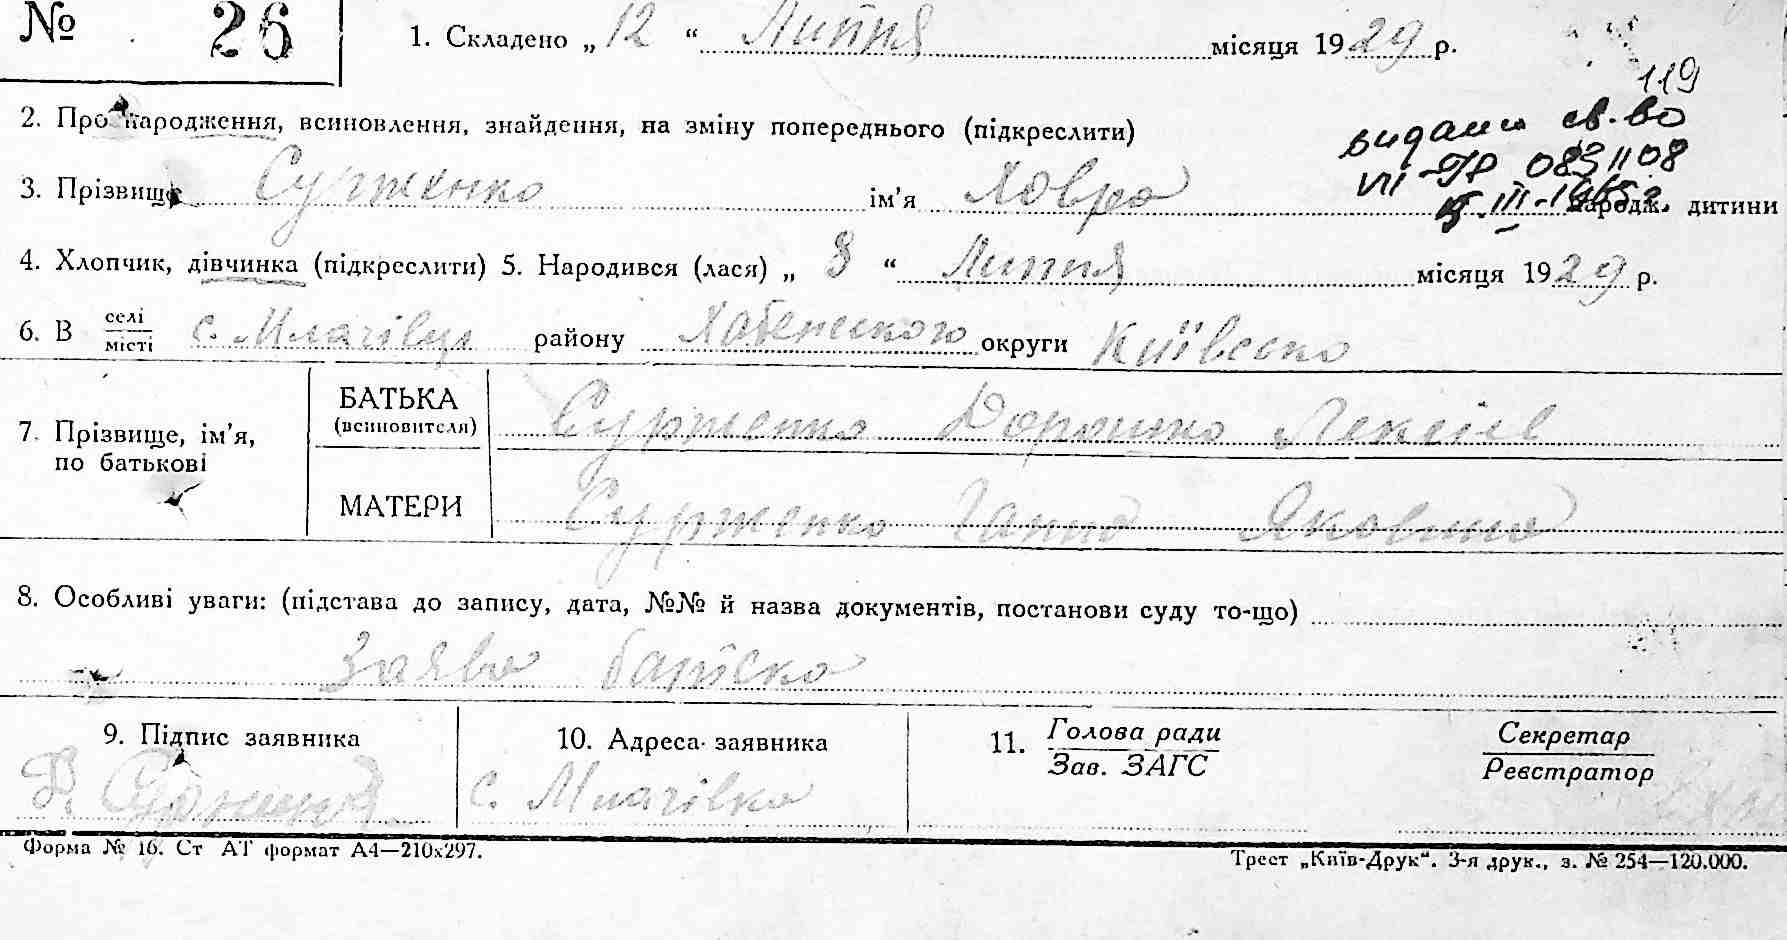 № 26
1. Складено „ 12 “ Липня місяця 1929 р.
119
2. Про народження, всиновлення, знайдення, на зміну попереднього (підкреслити)
видано св-во
VII-УР 0831108
3. Прізвище Сурженко ім’я Ховра народж. дитини
4. Хлопчик, дівчинка (підкреслити) 5. Народився (лася) „ 8 “ Липня місяця 1929 р.
6. В селі/місті с. Млачівці району Хабенського округи Київсько
7. Прізвище, ім’я, по батькові
БАТЬКА (всиновителя) Сурженко Дорошко Лексіев
МАТЕРИ Сурженко Ганна Яковина
8. Особливі уваги: (підстава до запису, дата, №№ й назва документів, постанови суду то-що)
Заява батька
9. Підпис заявника
10. Адреса заявника
11. Голова ради / Зав. ЗАГС
Секретар / Реєстратор
с. Млачівка
Форма № 16. Ст АТ формат А4—210х297.
Трест „Київ-Друк“. 3-я друк., з. № 254—120.000.